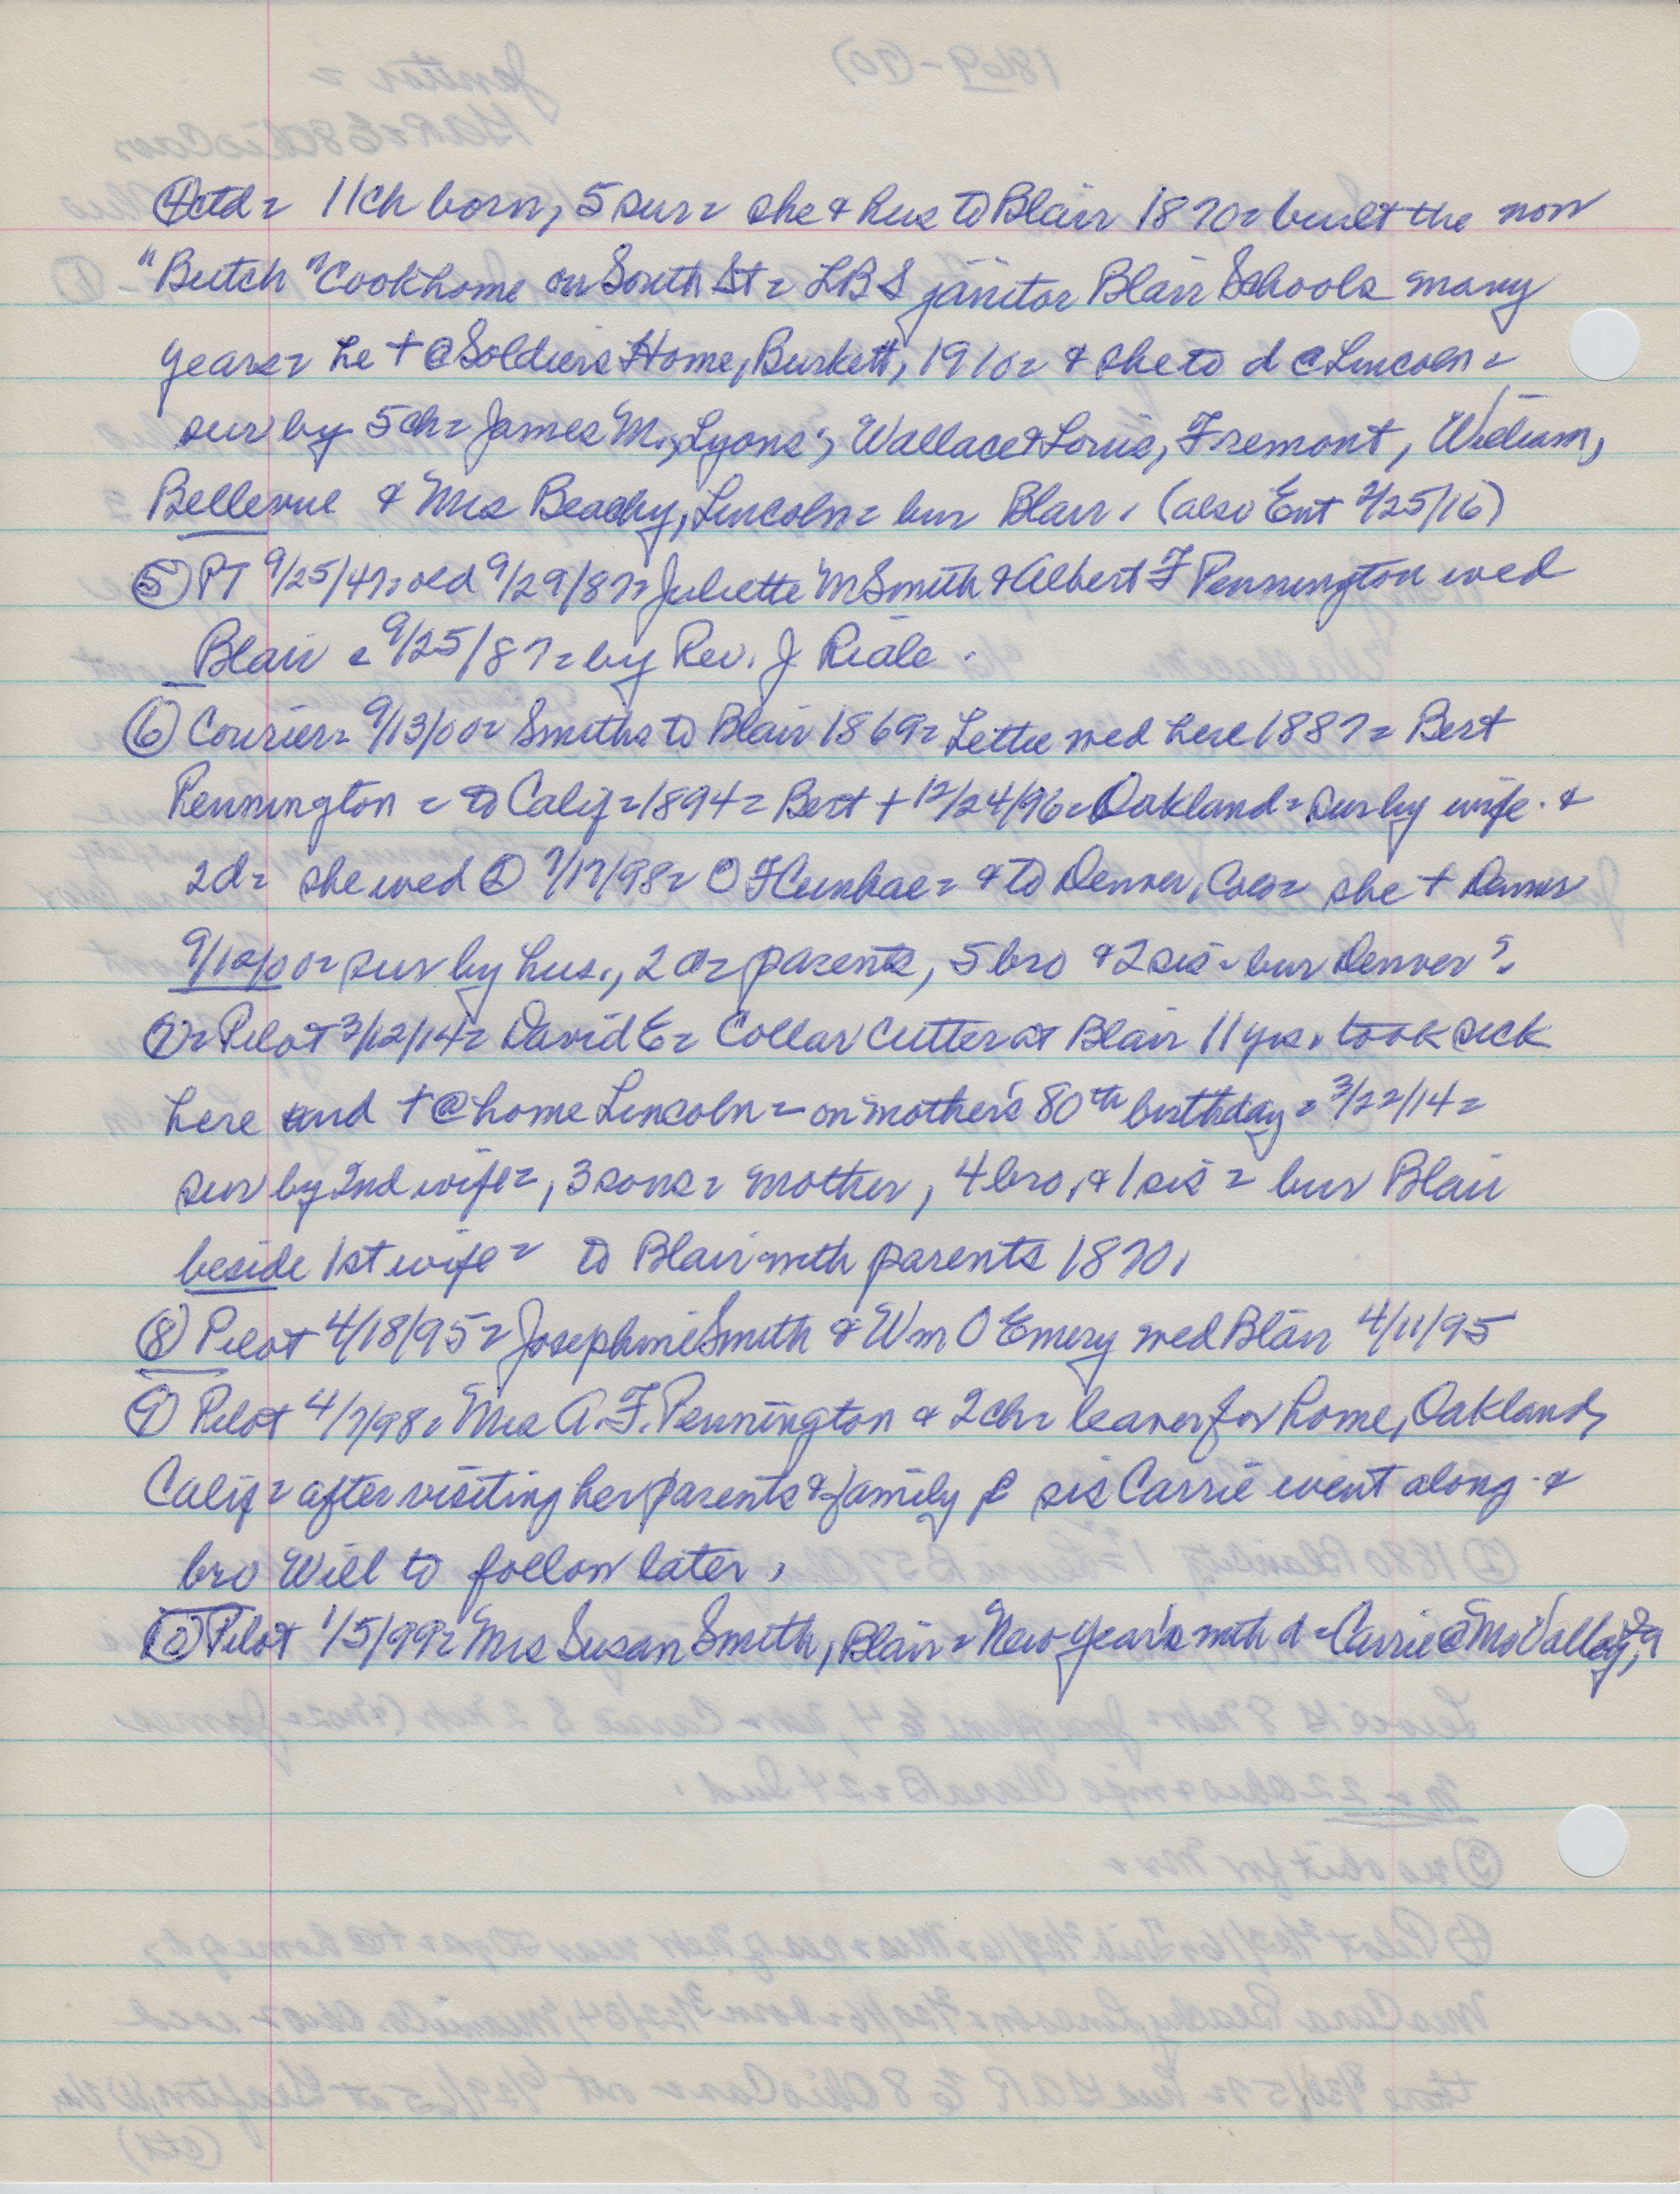 ④ctd = 11ch born, 5 sur = she & hus to Blair 1870 = built the now
"Butch" Cook home on South St = LBS janitor Blair Schools many
years = he + @ Soldiers Home, Burkett, 1910 = & she to d @ Lincoln =
sur by 5ch = James M., Lyons; Wallace & Louis, Fremont, William,
Bellevue & Mrs Beachy, Lincoln = bur Blair. (also Ent 2/25/16)
⑤ PT 9/25/47 = old 9/29/87 = Juliette M Smith & Albert F Pennington wed
Blair = 9/25/87 = by Rev. J Riale.
⑥ Courier = 9/13/00 = Smiths to Blair 1869 = Lettie wed here 1887 = Bert
Pennington = to Calif = 1894 = Bert + 12/24/96 = Oakland = sur by wife &
2d = she wed ② 7/17/98 = O F = & to Denver, Colo = she + Denver
9/10/00 = sur by hus., 2 d = parents, 5 bro & 2 sis = bur Denver?
⑦ = Pilot 3/12/14 = David E = Collar Cutter at Blair 11 yrs. took sick
here and + @ home Lincoln = on mother's 80th birthday = 3/22/14 =
sur by 2nd wife =, 3 sons = mother, 4 bro, & 1 sis = bur Blair
beside 1st wife = to Blair with parents 1870.
⑧ Pilot 4/18/95 = Josephine Smith & Wm O Emery wed Blair 4/11/95
⑨ Pilot 4/7/98 = Mrs A. F. Pennington & 2ch = leaves for home, Oakland,
Calif = after visiting her parents & family & sis Carrie went along &
bro Will to follow later.
⑩ Pilot 1/5/99 = Mrs Susan Smith, Blair = New Year's with d = Carrie @ Mo Valley, Ia